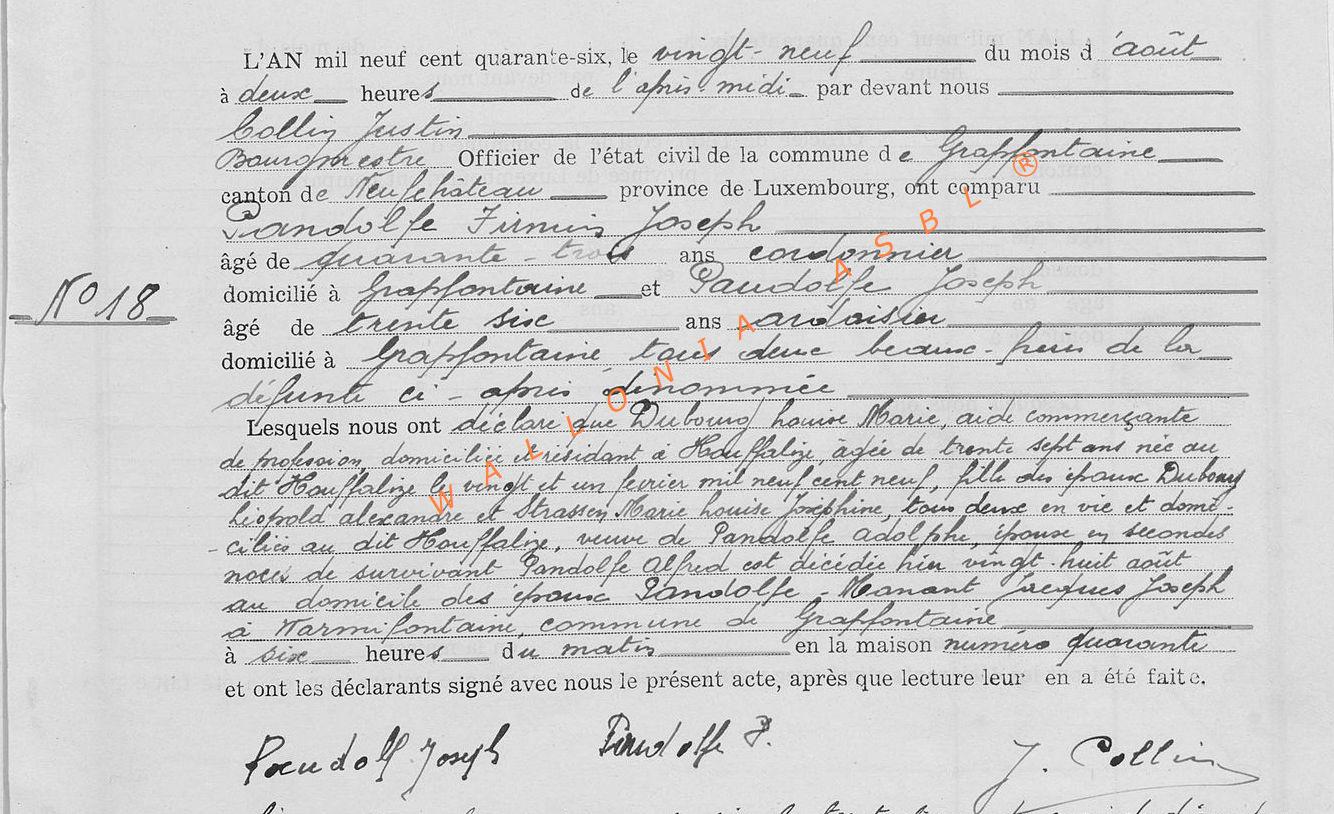 L'AN mil neuf cent quarante-six, le vingt-neuf du mois d'août
à deux heures de l'après midi par devant nous
Collin Justin
Bourgmestre Officier de l'état civil de la commune de Grapfontaine
canton de Neufchâteau province de Luxembourg, ont comparu
Pandolfe Firmin Joseph
âgé de quarante-trois ans cordonnier
domicilié à Grapfontaine et Pandolfe Joseph
N° 18
âgé de trente six ans ardoisier
domicilié à Grapfontaine tous deux beaux-frères de la
défunte ci-après dénommée
Lesquels nous ont déclaré que Dubourg Louise Marie, aide commerçante
de profession, domiciliée et résidant à Houffalize, âgée de trente sept ans née au
dit Houffalize le vingt et un février mil neuf cent neuf, fille des époux Dubourg
Léopold alexandre et Strassen Marie Louise Joséphine, tous deux en vie et domi-
-ciliés au dit Houffalize, veuve de Pandolfe adolphe, épouse en secondes
noces de survivant Pandolfe Alfred est décédée hier vingt-huit août
au domicile des époux Pandolfe-Manant Jacques Joseph
à Warmifontaine, commune de Grapfontaine
à six heures du matin en la maison numéro quarante
et ont les déclarants signé avec nous le présent acte, après que lecture leur en a été faite.
Pandolf Joseph Pandolfe F. J. Collin
WALLONIA ASBL ®